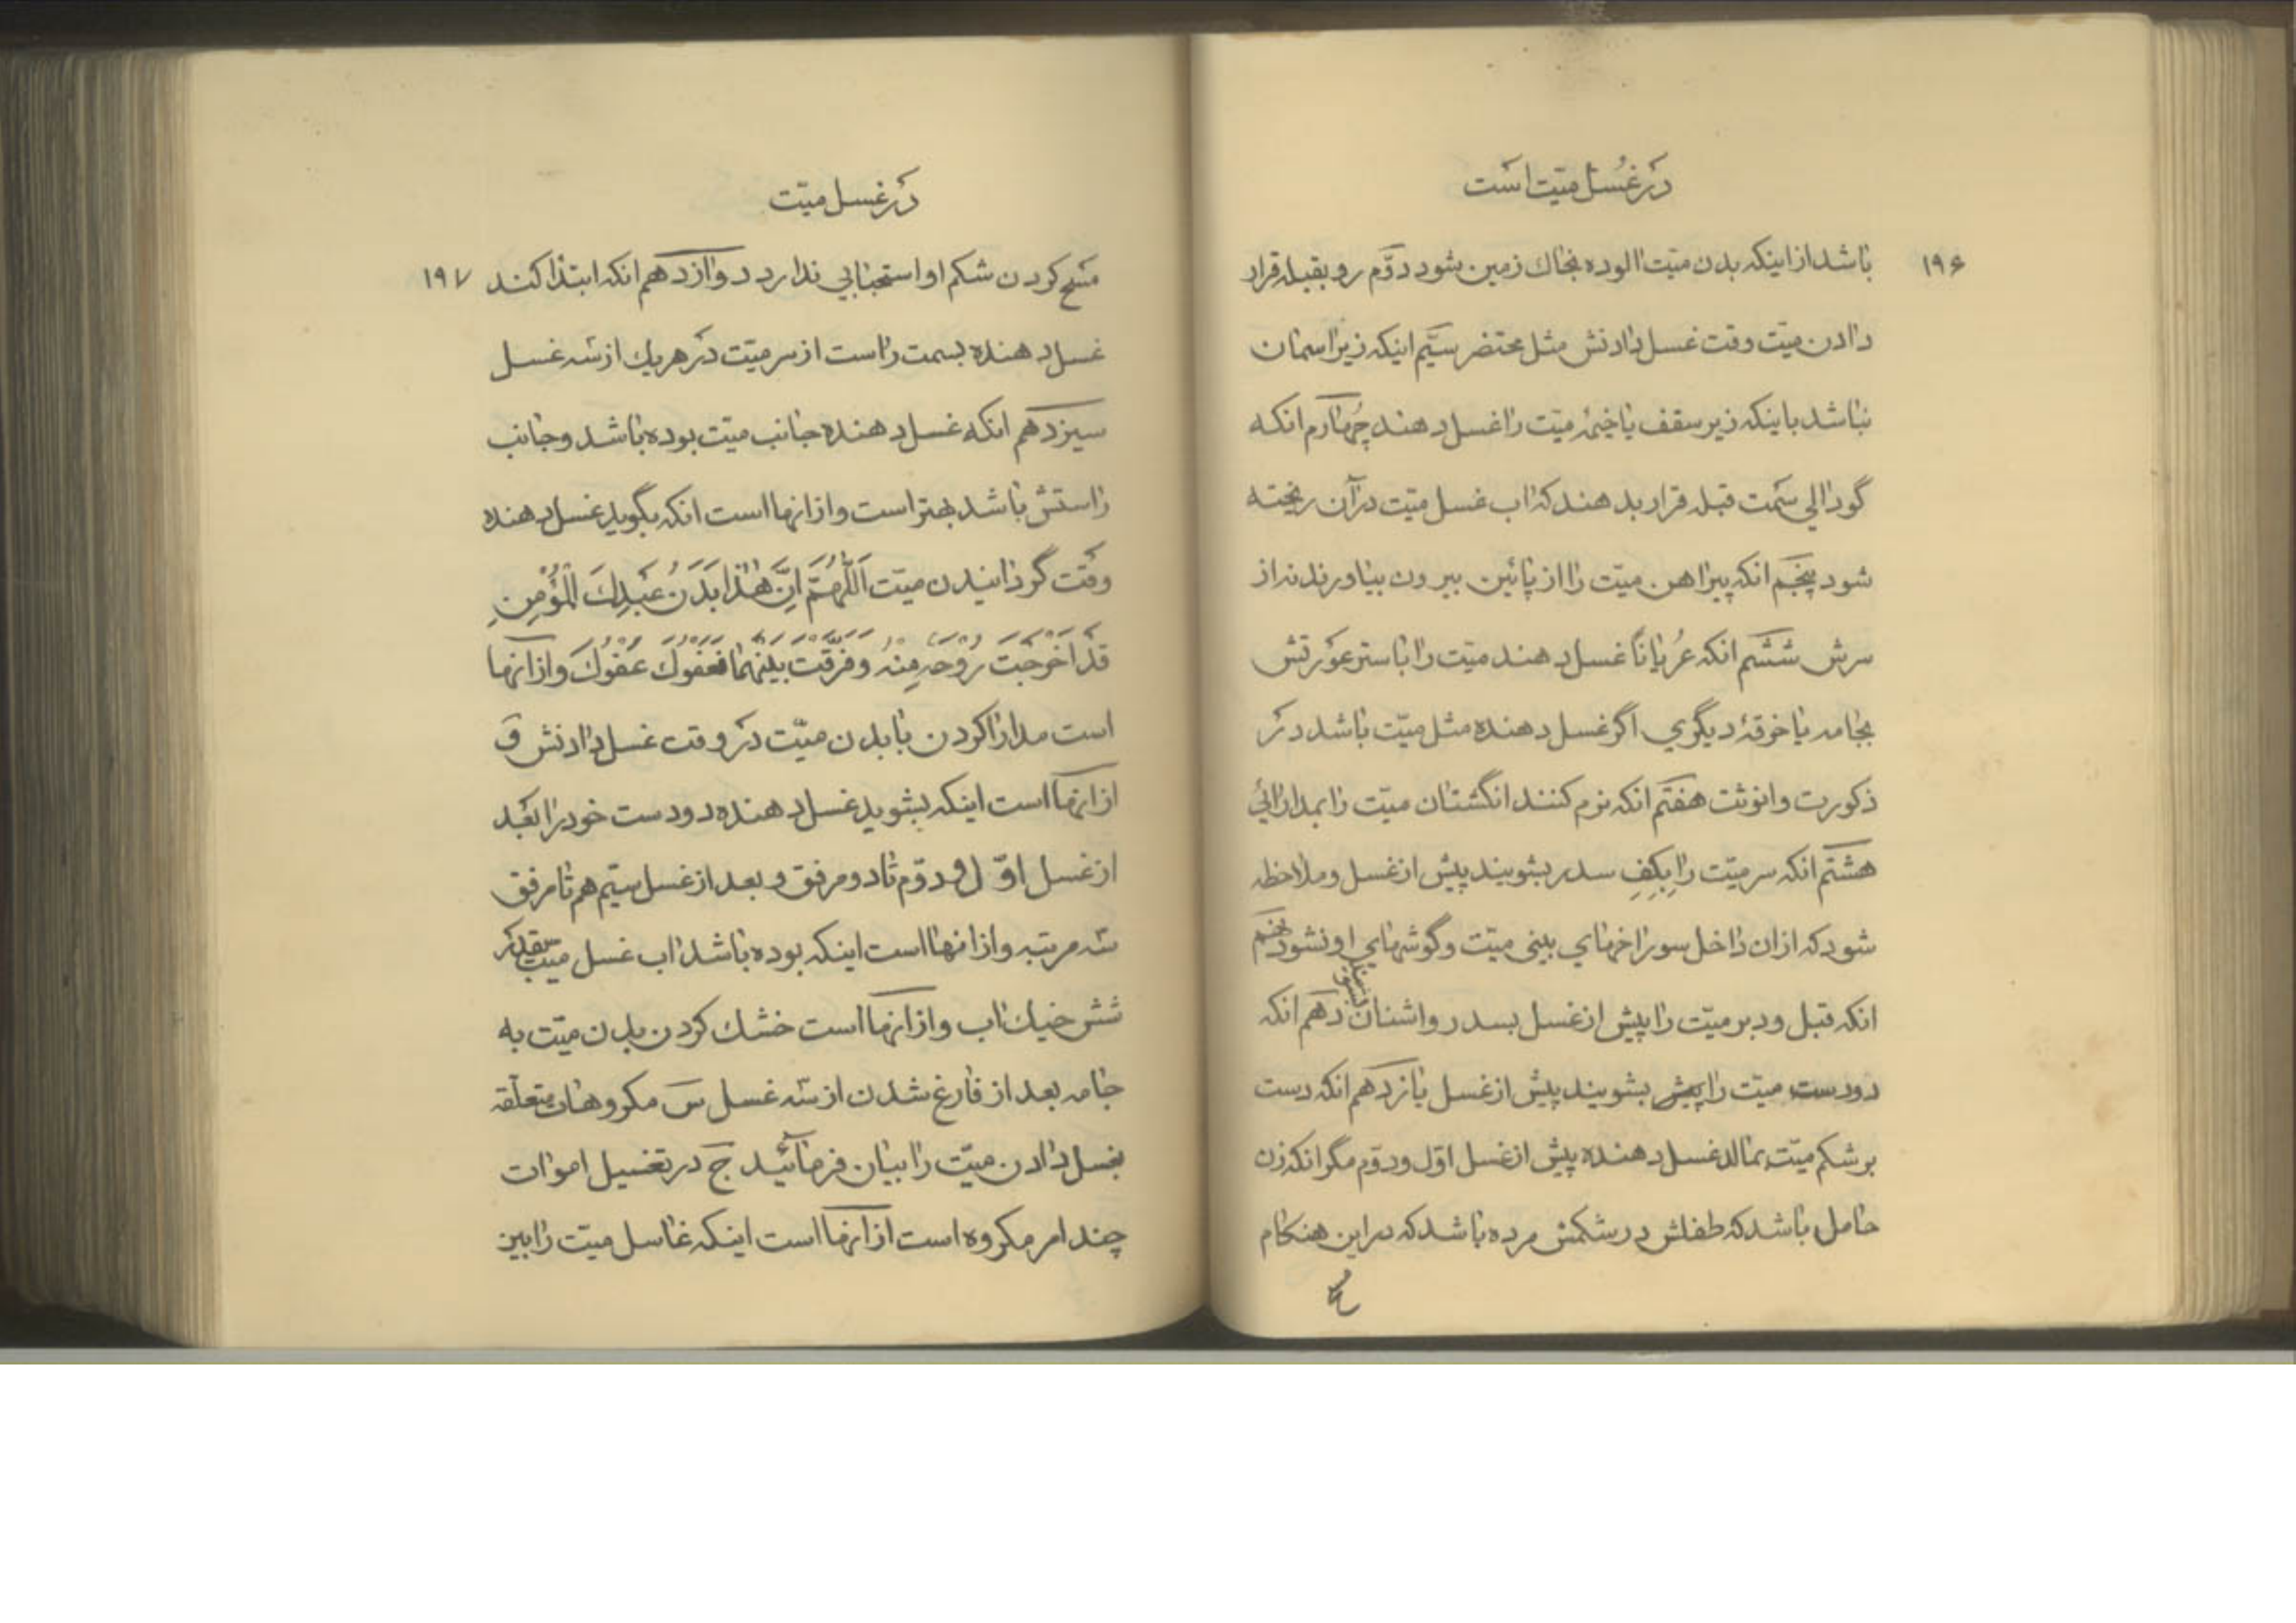 در غُسل میّت است
۱۹۶
باشد از اینکه بدن میّت الوده بخاك زمین بشود دوّم رو بقبله قرار
دادن میّت وقت غسل دادنش مثل محتضر سیّم اینکه زیر اسمان
نباشد باینکه زیر سقف یا خیمۀ میّت را غسل دهند چهارم انکه
گودالی سمت قبله قرار بدهند که اب غسل میّت در آن ریخته
شود پنجم انکه پیراهن میّت را از پائین بیرون بیاورند نه از
سرش ششم انکه عُریاناً غسل دهند میّت را با ستر عورتش
بجامه یا خرقۀ دیگري اگر غسل دهنده مثل میّت باشد در
ذکورت وانوثت هفتم انکه نرم کنند انگشتان میّت را بمدارائي
هشتم انکه سر میّت را بِکَفِ سدر بشویند پیش از غسل وملاحظه
شود که از ان داخل سوراخهاي بینی میّت وگوشهاي او نشود نهم
انکه قبل ودبر میّت را پیش از غسل بسدر واشنان بشویند دهم انکه
دودست میّت را پیش بشویند پیش از غسل یازدهم انکه دست
بر شکم میّت بمالد غسل دهنده پیش از غسل اوّل ودوّم مگر انکه زن
حامل باشد که طفلش در شکمش مرده باشد که در این هنکام
در غسل میّت
۱۹۷
مسح کردن شکم او استحبابي ندارد دوازدهم انکه ابتدا کند
غسل دهنده بسمت راست از سر میّت در هریك از سه غسل
سیزدهم انکه غسل دهنده جانب میّت بوده باشد وجانب
راستش باشد بهتر است واز انها است انکه بگوید غسل دهنده
وقت گردانیدن میّت اَللّٰهُمَّ اِنَّ هٰذا بَدَنُ عَبدِكَ الْمُؤْمِنِ
قَدْ اَخْرَجْتَ رُوْحَهُ مِنْهُ وَفَرَّقْتَ بَيْنَهُمَا فَعَفْوَكَ عَفْوَكَ واز انها
است مدارا کردن با بدن میّت در وقت غسل دادنش وَ
از انها است اینکه بشوید غسل دهنده دودست خود را بعد
از غسل اوّل و دوّم تا دو مرفق وبعد از غسل سیّم هم تا مرفق
سه مرتبه واز انها است اینکه بوده باشد اب غسل میّت بقدر
شش خیك اب واز انها است خشك کردن بدن میّت به
جامه بعد از فارغ شدن از سه غسل سَ مکروهات متعلّقه
بغسل دادن میّت را بیان فرمائید جَ در تغسیل اموات
چند امر مکروه است از انها است اینکه غاسل میّت را بین